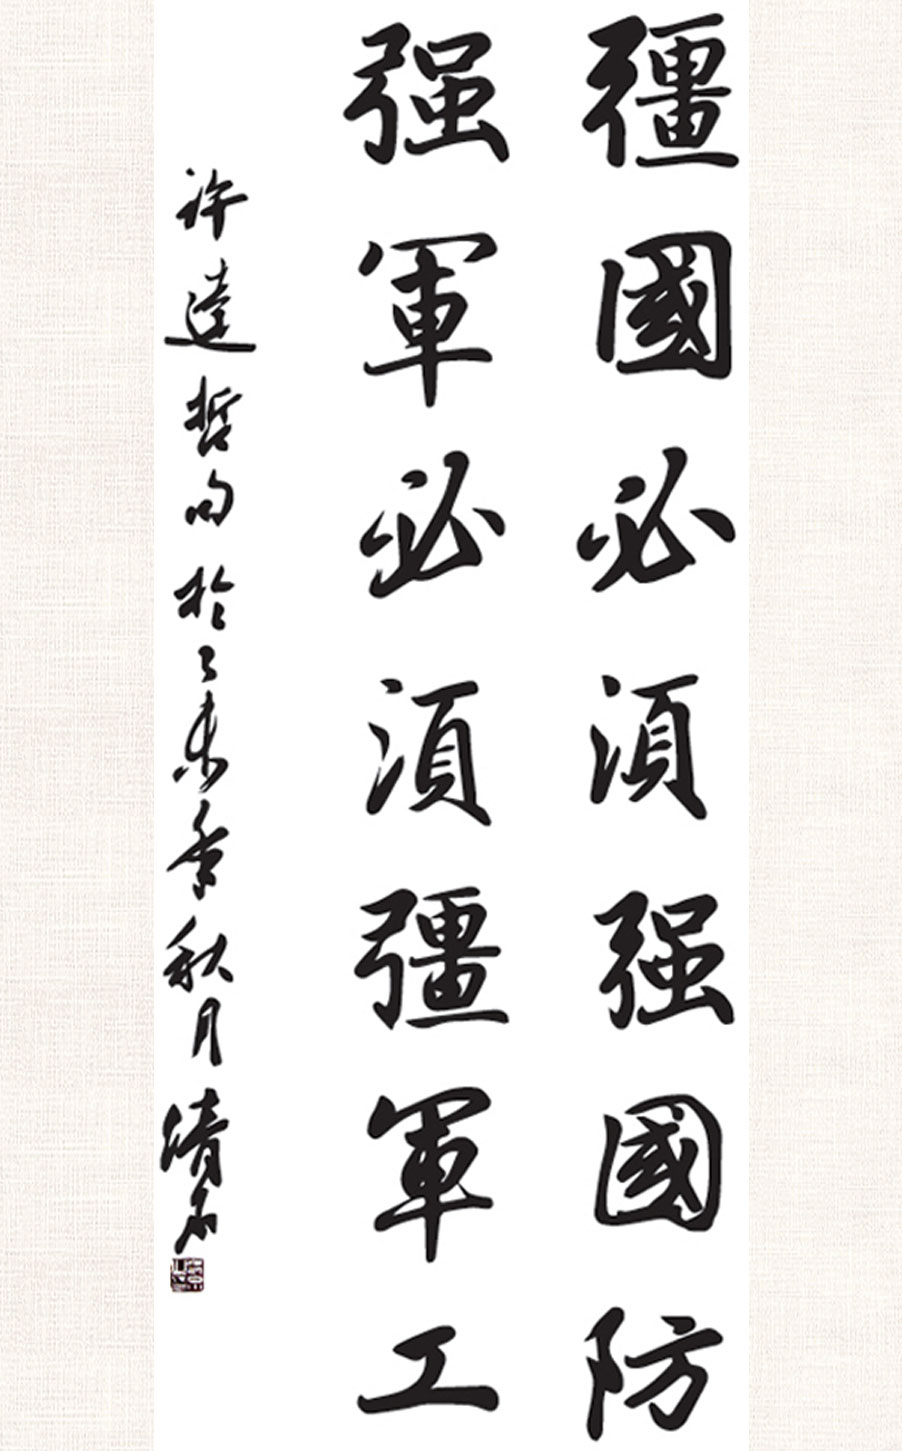 彊國必須强國防
强軍必須彊軍工
许达哲句於乙未年秋月清君